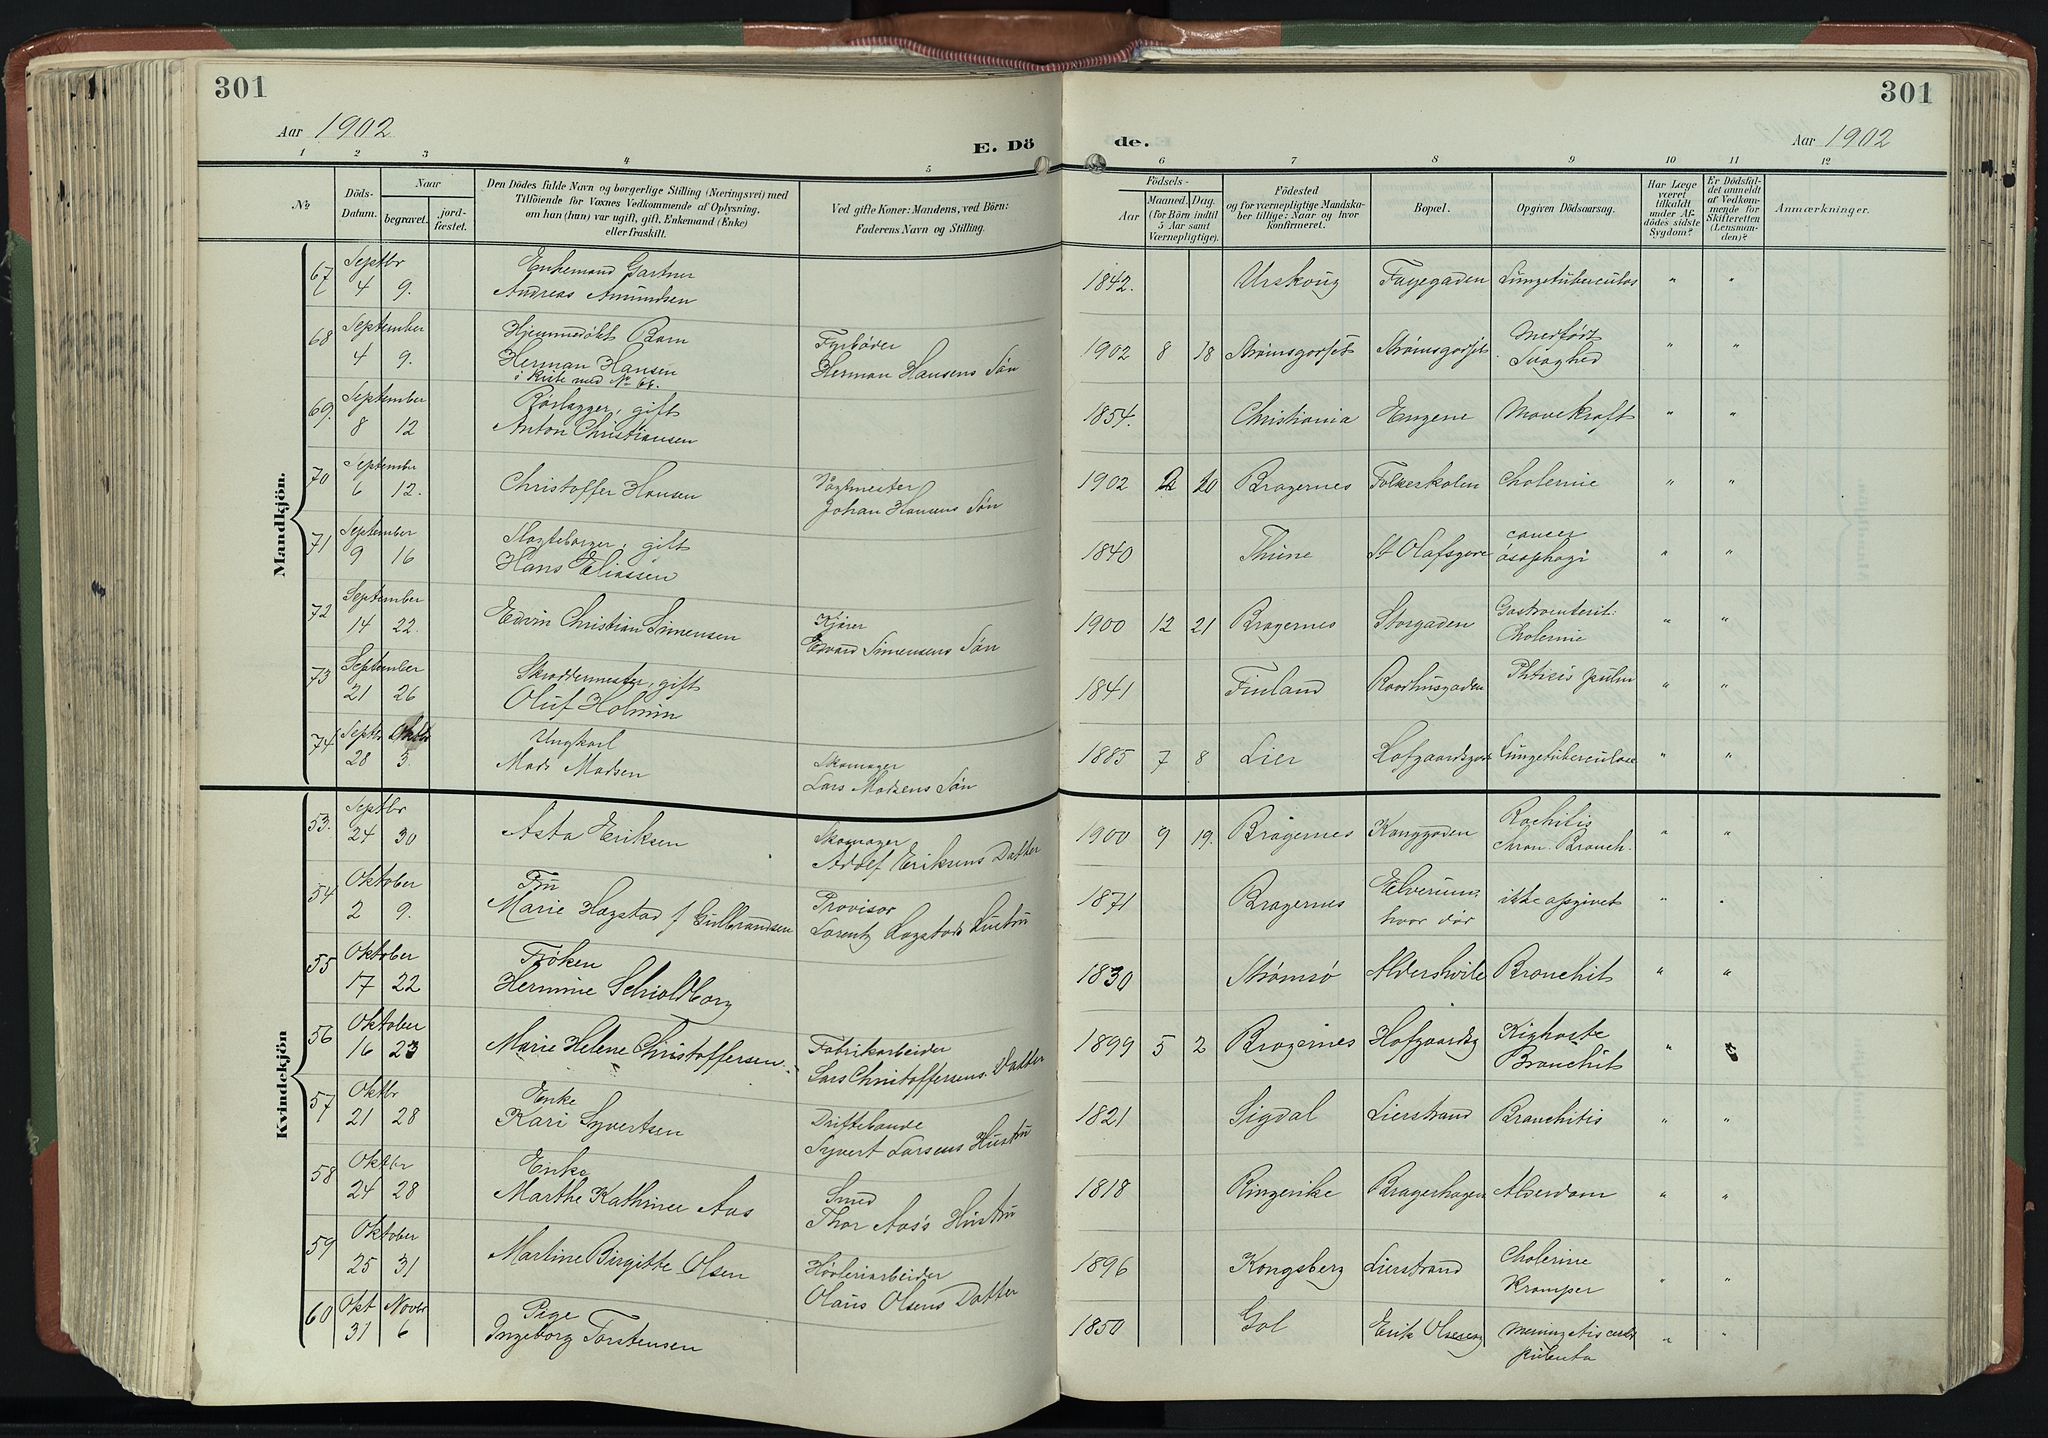 301
301
Aar 1902
E. Dö
de.
Aar 1902
1 2 3 4 5
6 7 8 9 10 11 12
№
Döds-
Datum.
Naar
begravet.
jord-
fæstet.
Den Dödes fulde Navn og borgerlige Stilling (Næringsvei) med
Tilföiende for Voxnes Vedkommende af Oplysning,
om han (hun) var ugift, gift, Enkemand (Enke)
eller fraskilt.
Ved gifte Koner: Mandens, ved Börn:
Faderens Navn og Stilling.
Födsels-
Aar
Maaned. Dag.
(for Börn indtil
5 Aar samt
Værnepligtige).
Födested
og for værnepligtige Mandska-
ber tillige: Naar og hvor
konfirmeret.
Bopæl.
Opgiven Dödsaarsag.
Har Læge
været
tilkaldt
under Af-
dödes sidste
Sygdom?
Er Dödsfal-
det anmeldt
af Vedkom-
mende for
Skifteretten
(Lensman-
den)?
Anmærkninger.
Mandkjön.
67 Septbr Enkemand Gartner
4 9. Andreas Amundsen 1842. Urskoug Fayegaden Lungetuberculos " "
68 September Hjemmedøbt Barn Fyrbøder Medfødt
4 9. Herman Hansen Herman Hansens Søn 1902 8 18 Strømsgodset Strømsgodset Svaghed " "
i Kiste med No 66.
69. September Rørlægger, gift
8 12 Anton Christiansen 1854. Christiania Engene Mavekræft " "
70 September Vagtmester
6 12. Christoffer Hansen Johan Hansens Søn 1902 2 20 Bragernes Folkeskolen Cholerine " "
71 September gift cancer
9 16 Hans Eliassen 1840 Thune St Olafsgade øsophagi " "
72 September Kjører Gastroenterit:
14 22. Edvin Christian Simensen Edvard Simensens Søn 1900 12 21 Bragernes Storgaden Cholerine " "
73 September Skreddermester, gift
21 26 Oluf Holmin 1841 Finland Raadhusgaden Phtisis pulm " "
74 Septbr Oktbr Ungkarl Skomager
28 3. Mads Madsen Lars Madsens Søn 1885 7 8 Lier Hofgaardsgad Lungetuberculose " "
Kvindekjön
53. Septbr Skomager Rachitis
24 30 Asta Eriksen Adolf Eriksens Datter 1900 9 19. Bragernes Konggaden Chron. Bronch. " "
54 Oktober Fru Provisor Elverum,
2 9. Marie Hagstad f Gulbrandsen Lorentz Hagstads Hustru 1871 Bragernes hvor død ikke opgivet " "
55 Oktober Frøken
17 22 Hermine Schioldborg 1830 Strømsø Aldershvile Bronchit " "
56 Oktober Fabrikarbeider Kighoste
16 23 Marie Helene Christoffersen Lars Christoffersens Datter 1899 5 2 Bragernes Hofgaardsg Bronchit "
57 Oktbr Enke Driftebonde
21 28 Kari Syvertsen Syvert Larsens Hustru 1821 Sigdal Lierstrand Bronchitis " "
58 Oktbr Enke Smed
24 28 Marthe Kathrine Aas Thor Aas's Hustru 1818 Ringerike Bragerhagen Alderdom " "
59 Oktober Høvleriarbeider Cholerine
25 31 Martine Birgitte Olsen Olaus Olsens Datter 1896 Kongsberg Lierstrand Kramper " "
60 Okt Novbr Pige
31 6 Ingeborg Torstensen 1850 Gol Erik Olsesg " "